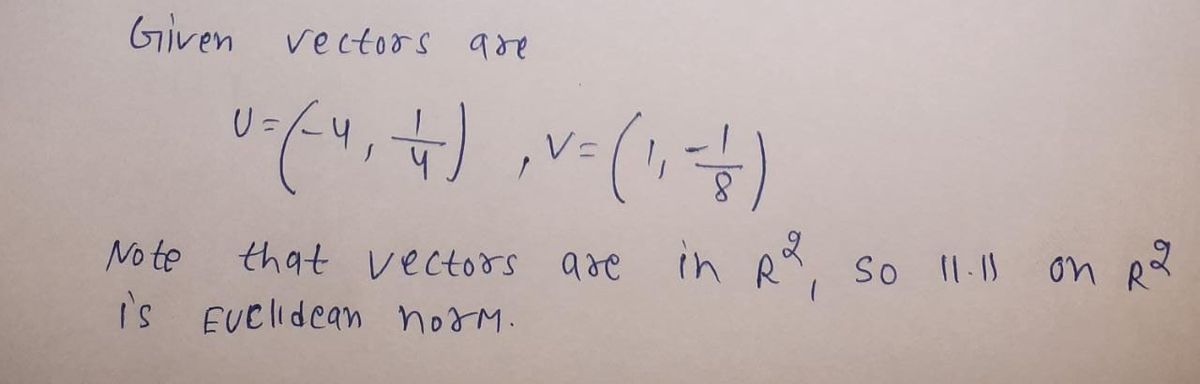 Given vectors are
U = (-4, 1/4), V = (1, -1/8)
Note that vectors are in R², so ||.|| on R²
is Euclidean norm.